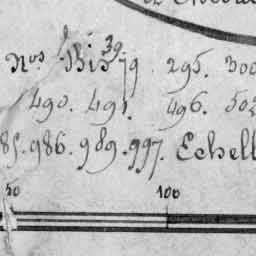 Nos Bis 39 79. 295. 300
490. 491. 496. 502
85. 986. 989. 997. Echell
50 100